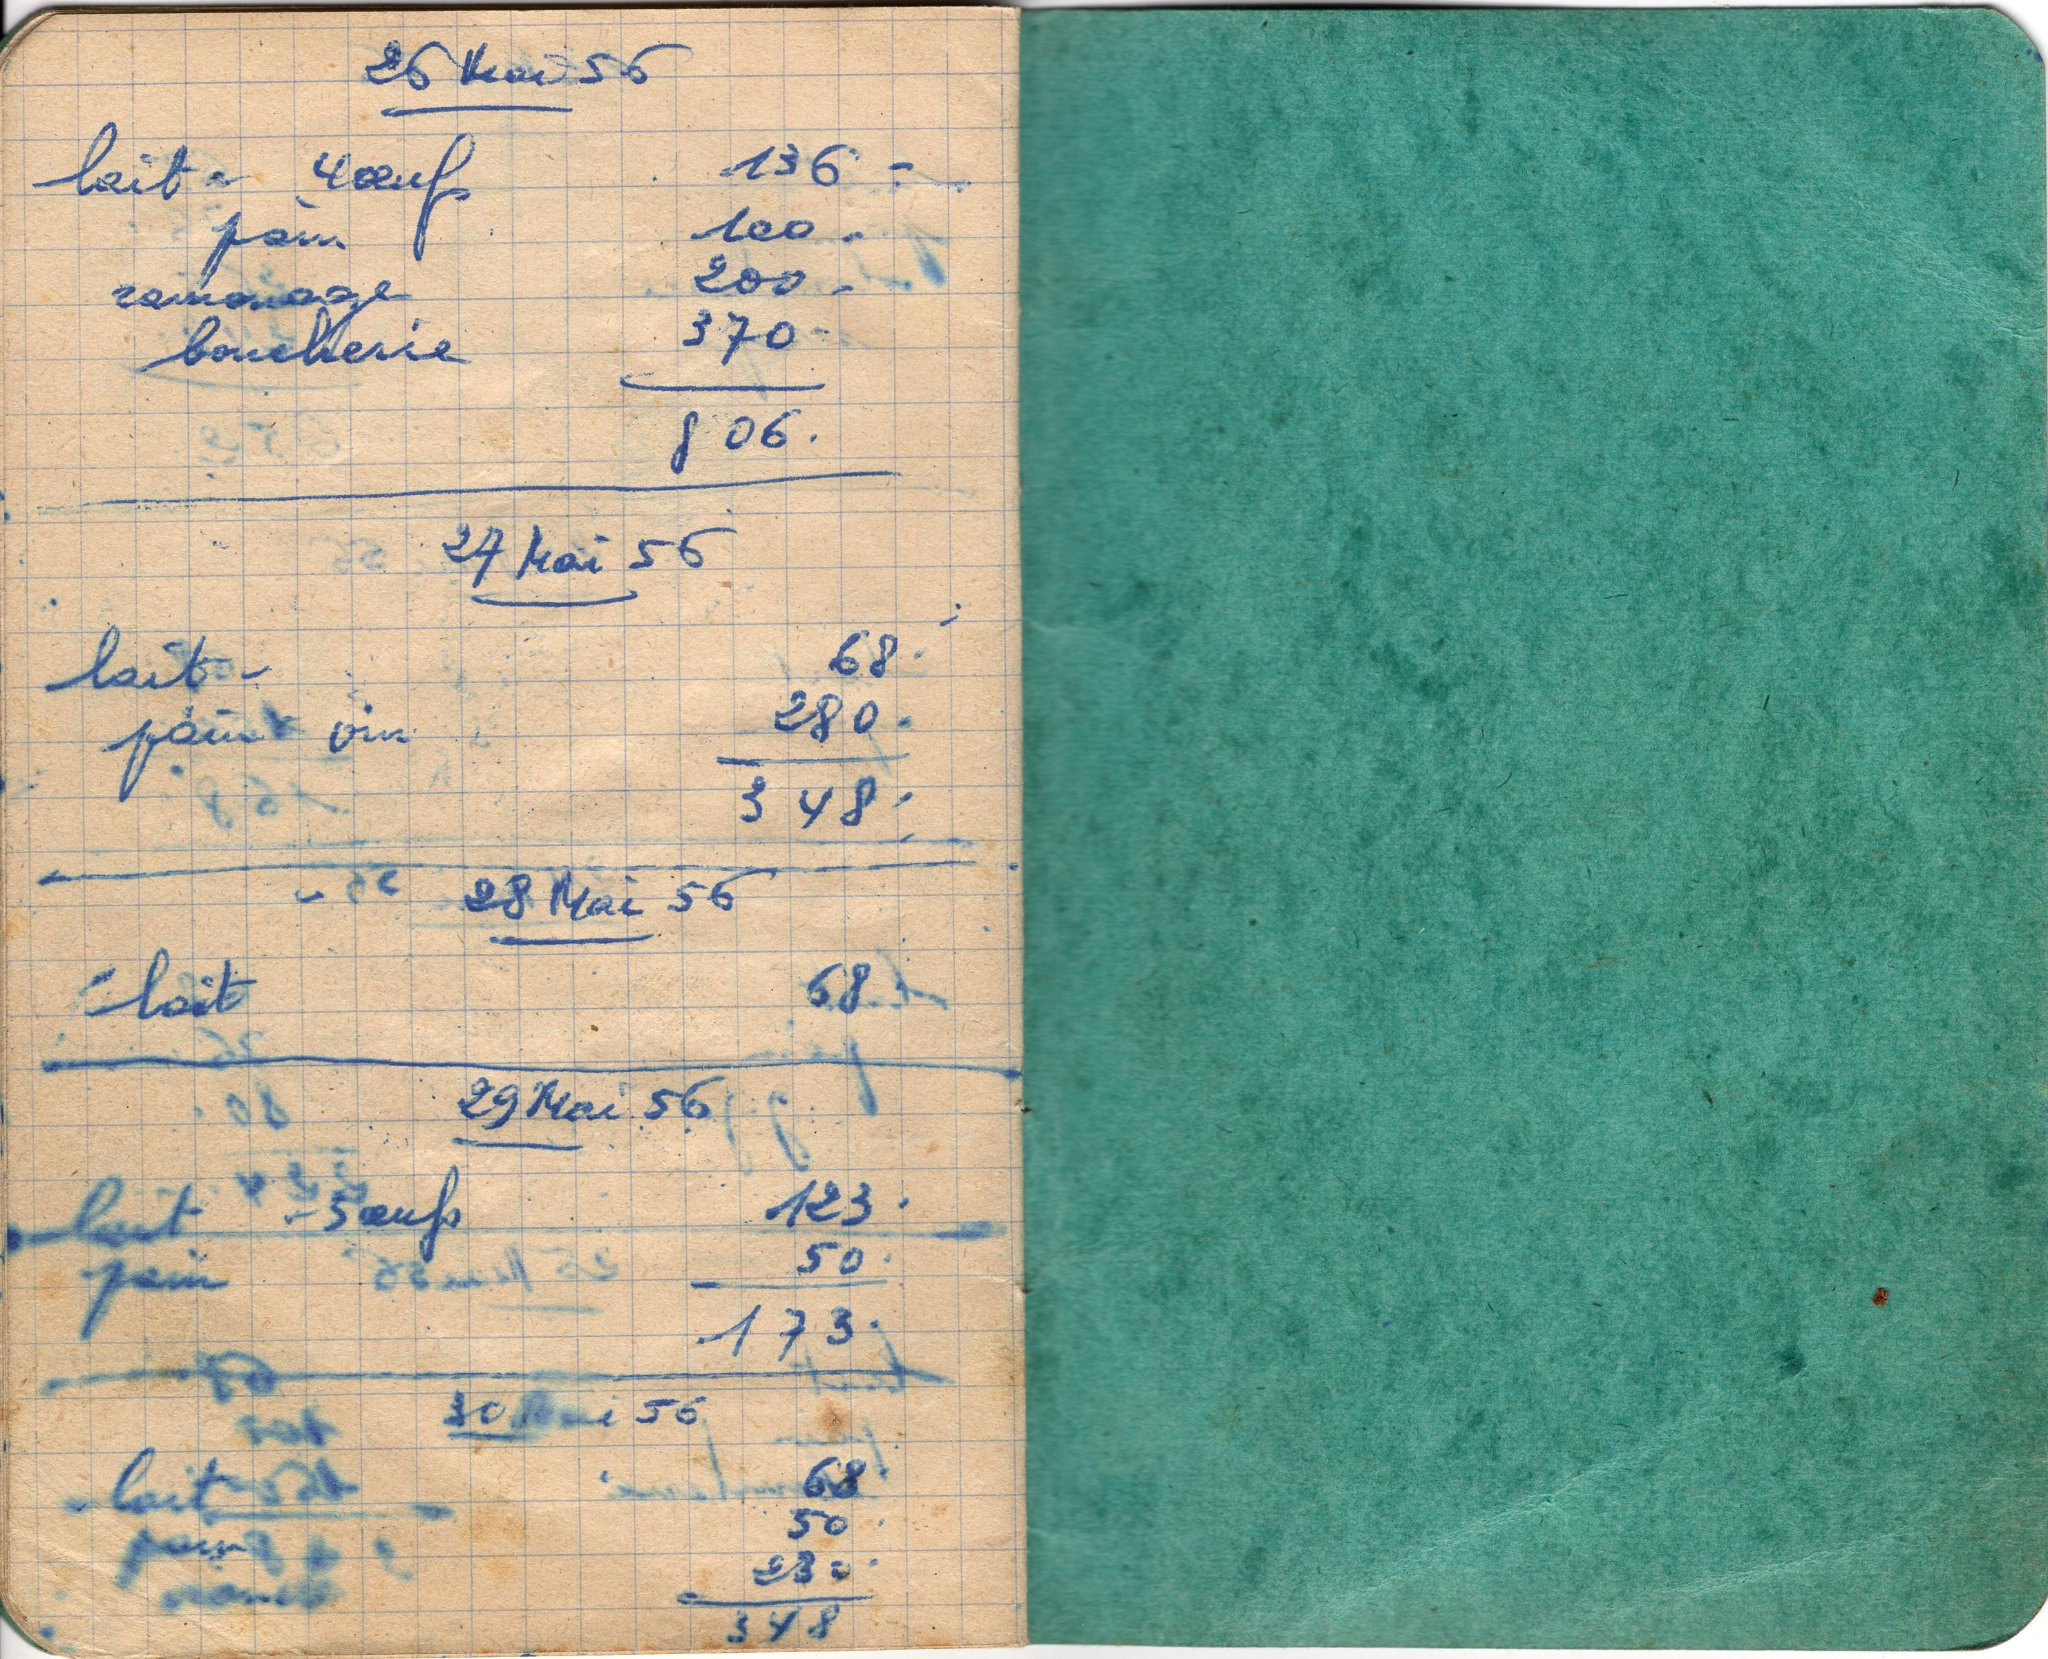 26 Mai 56
lait - 4 œufs 136 -
pain 100 -
ramonage 200 -
boucherie 370 -
806.
27 Mai 56
lait - 68.
pain vin 280.
348.
28 Mai 56
- lait 68
29 Mai 56
lait - 5 œufs 123.
pain 50.
173.
30 Mai 56
- lait 68
pain 50.
230.
348